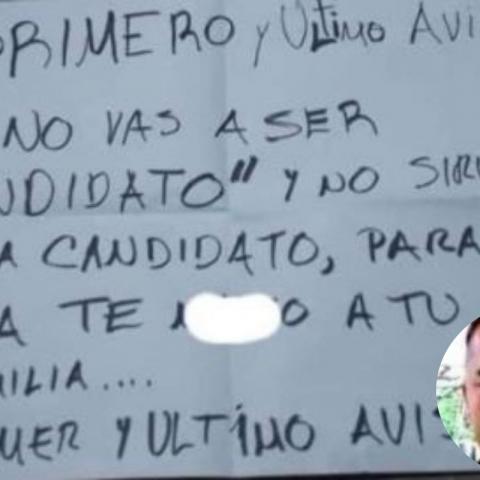 PRIMERO y Ultimo AVI
NO VAS A SER
NDIDATO" Y NO SIR
A CANDIDATO, PARA
A TE O A TU
ILIA....
MER Y ULTIMO AVIS